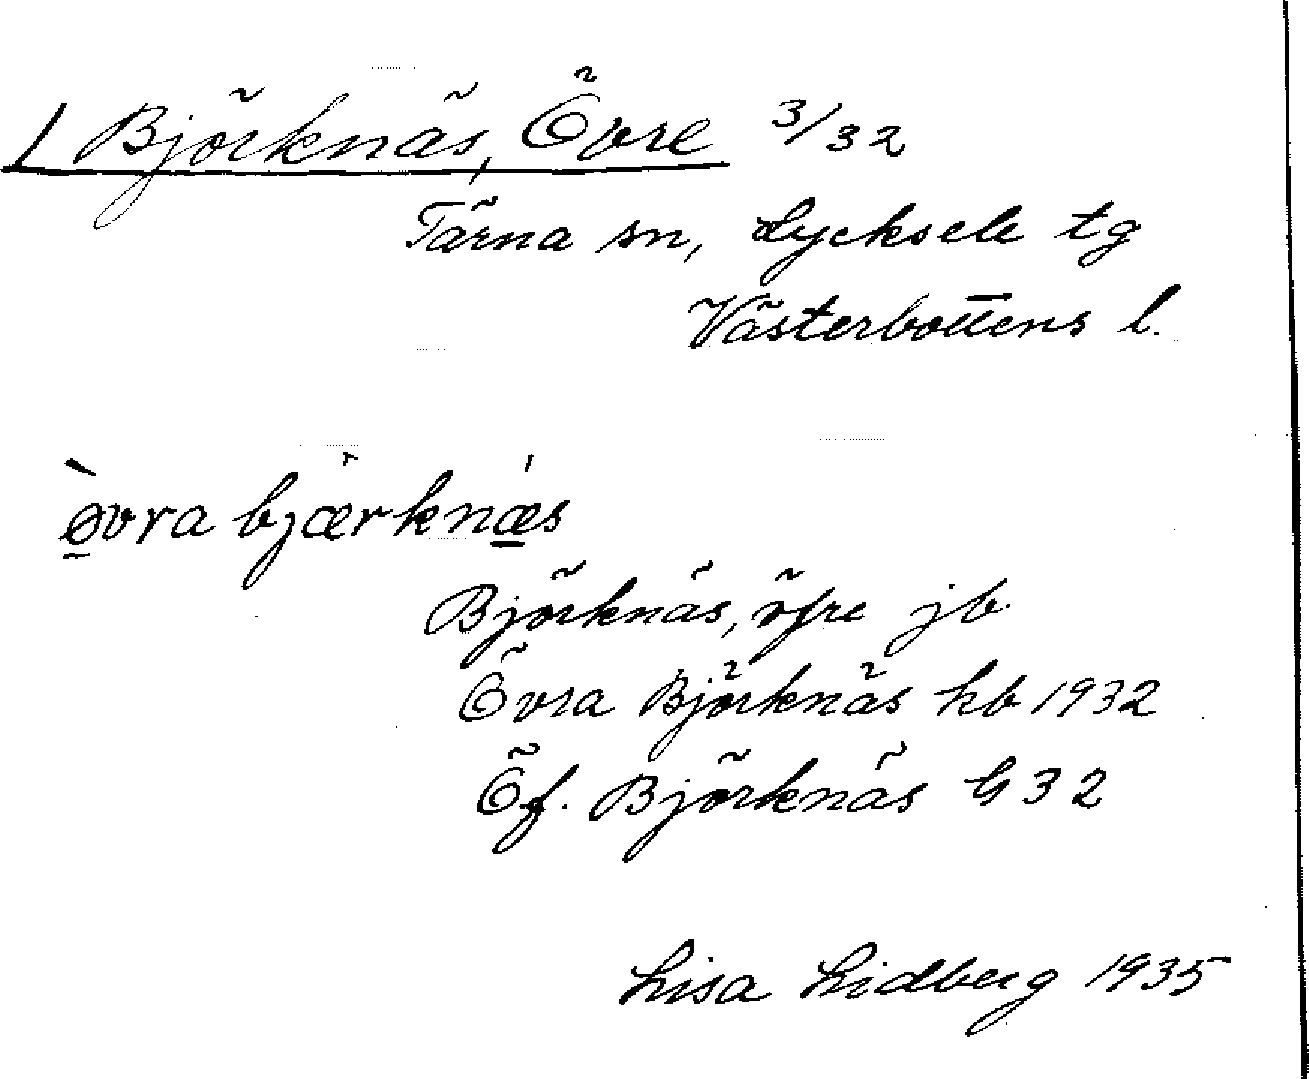 / Björknäs, Övre 3/32
Tärna sn, Lycksele tg
Västerbottens l.
ø̀vra bjærknæs
Björknäs, öfre jb
Övra Björknäs hb 1932
Öf. Björknäs G 32
Lisa Lidberg 1935